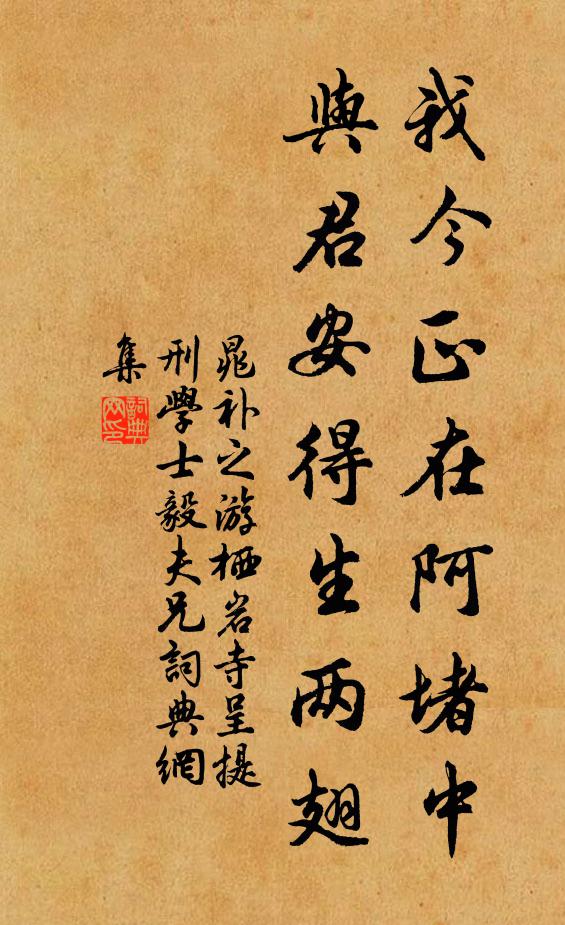 我今正在阿堵中
與君安得生两翅
晁补之游栖岩寺呈提
刑學士毅夫兄詞典網
集
詞典
网印